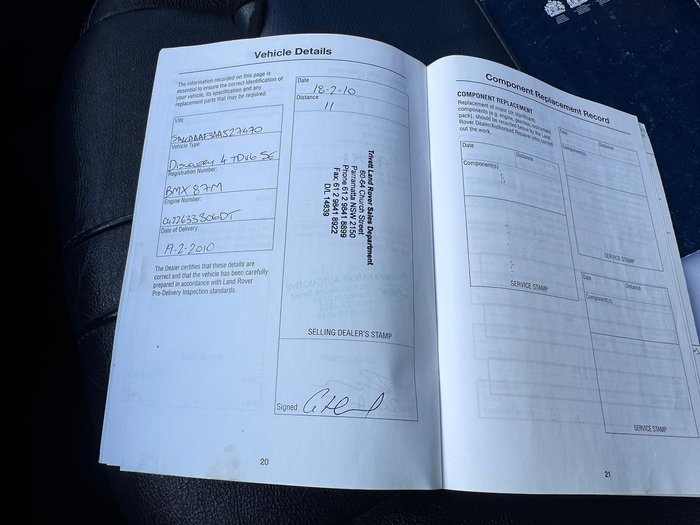 Vehicle Details
The information recorded on this page is
essential to ensure the correct identification of
your vehicle, its specification and any
replacement parts that may be required.
VIN:
Vehicle Type:
Discovery 4 TDV6 SE
Registration Number:
BMX 87M
Engine Number:
Date of Delivery:
19-2-2010
The Dealer certifies that these details are
correct and that the vehicle has been carefully
prepared in accordance with Land Rover
Pre-Delivery Inspection standards.
Date
18-2-10
Distance
11
Trivett Land Rover Sales Department
60-64 Church Street
Parramatta NSW 2150
Phone 61 2 9841 8899
Fax: 61 2 9841 8922
D/L 14839
SELLING DEALER'S STAMP
Signed
20
Component Replacement Record
COMPONENT REPLACEMENT
Replacement of major (or significant)
components (e.g. engine, gearbox, instrument
pack), should be recorded below by the Land
Rover Dealer/Authorised Repairer who carried
out the work.
Date Distance
Component(s)
SERVICE STAMP
Date Distance
Component(s)
SERVICE STAMP
Date Distance
Component(s)
SERVICE STAMP
21